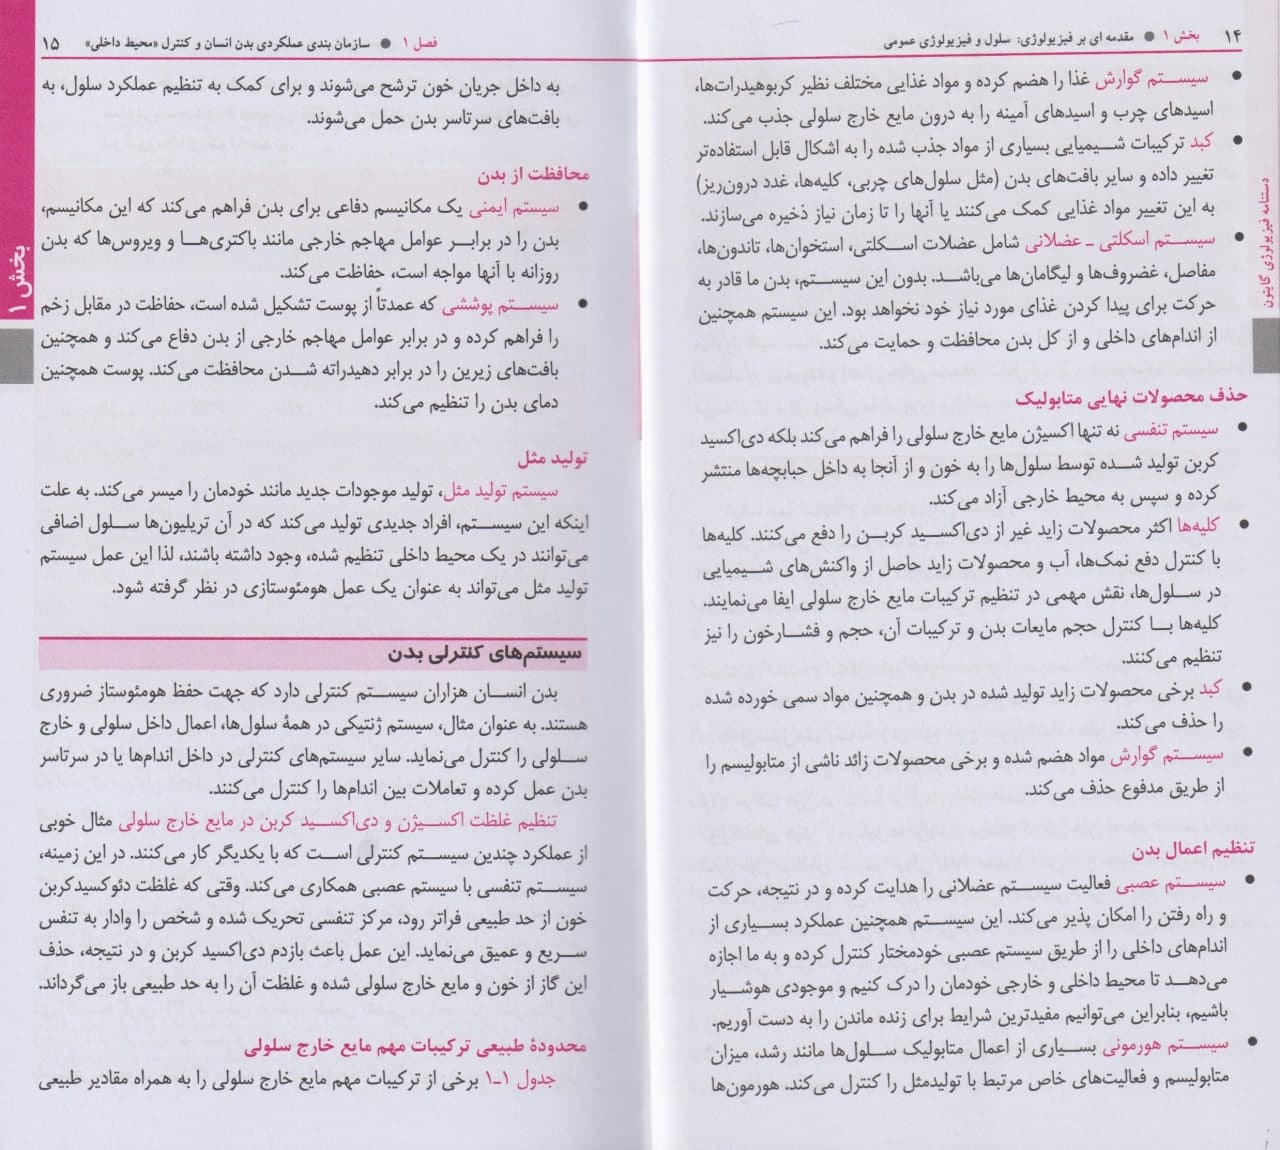 ۱۴ بخش ۱ ● مقدمه ای بر فیزیولوژی: سلول و فیزیولوژی عمومی
● سیستم گوارش غذا را هضم کرده و مواد غذایی مختلف نظیر کربوهیدرات‌ها،
اسیدهای چرب و اسیدهای آمینه را به درون مایع خارج سلولی جذب می‌کند.
● کبد ترکیبات شیمیایی بسیاری از مواد جذب شده را به اشکال قابل استفاده‌تر
تغییر داده و سایر بافت‌های بدن (مثل سلول‌های چربی، کلیه‌ها، غدد درون‌ریز)
به این تغییر مواد غذایی کمک می‌کنند یا آنها را تا زمان نیاز ذخیره می‌سازند.
● سیستم اسکلتی ـ عضلانی شامل عضلات اسکلتی، استخوان‌ها، تاندون‌ها،
مفاصل، غضروف‌ها و لیگامان‌ها می‌باشد. بدون این سیستم، بدن ما قادر به
حرکت برای پیدا کردن غذای مورد نیاز خود نخواهد بود. این سیستم همچنین
از اندام‌های داخلی و از کل بدن محافظت و حمایت می‌کند.
حذف محصولات نهایی متابولیک
● سیستم تنفسی نه تنها اکسیژن مایع خارج سلولی را فراهم می‌کند بلکه دی‌اکسید
کربن تولید شده توسط سلول‌ها را به خون و از آنجا به داخل حبابچه‌ها منتشر
کرده و سپس به محیط خارجی آزاد می‌کند.
● کلیه‌ها اکثر محصولات زاید غیر از دی‌اکسید کربن را دفع می‌کنند. کلیه‌ها
با کنترل دفع نمک‌ها، آب و محصولات زاید حاصل از واکنش‌های شیمیایی
در سلول‌ها، نقش مهمی در تنظیم ترکیبات مایع خارج سلولی ایفا می‌نمایند.
کلیه‌ها با کنترل حجم مایعات بدن و ترکیبات آن، حجم و فشارخون را نیز
تنظیم می‌کنند.
● کبد برخی محصولات زاید تولید شده در بدن و همچنین مواد سمی خورده شده
را حذف می‌کند.
● سیستم گوارش مواد هضم شده و برخی محصولات زائد ناشی از متابولیسم را
از طریق مدفوع حذف می‌کند.
تنظیم اعمال بدن
● سیستم عصبی فعالیت سیستم عضلانی را هدایت کرده و در نتیجه، حرکت
و راه رفتن را امکان پذیر می‌کند. این سیستم همچنین عملکرد بسیاری از
اندام‌های داخلی را از طریق سیستم عصبی خودمختار کنترل کرده و به ما اجازه
می‌دهد تا محیط داخلی و خارجی خودمان را درک کنیم و موجودی هوشیار
باشیم، بنابراین می‌توانیم مفیدترین شرایط برای زنده ماندن را به دست آوریم.
● سیستم هورمونی بسیاری از اعمال متابولیک سلول‌ها مانند رشد، میزان
متابولیسم و فعالیت‌های خاص مرتبط با تولیدمثل را کنترل می‌کند. هورمون‌ها
دستنامه فیزیولوژی گایتون
فصل ۱ ● سازمان بندی عملکردی بدن انسان و کنترل «محیط داخلی» ۱۵
به داخل جریان خون ترشح می‌شوند و برای کمک به تنظیم عملکرد سلول، به
بافت‌های سرتاسر بدن حمل می‌شوند.
محافظت از بدن
● سیستم ایمنی یک مکانیسم دفاعی برای بدن فراهم می‌کند که این مکانیسم،
بدن را در برابر عوامل مهاجم خارجی مانند باکتری‌ها و ویروس‌ها که بدن
روزانه با آنها مواجه است، حفاظت می‌کند.
● سیستم پوششی که عمدتاً از پوست تشکیل شده است، حفاظت در مقابل زخم
را فراهم کرده و در برابر عوامل مهاجم خارجی از بدن دفاع می‌کند و همچنین
بافت‌های زیرین را در برابر دهیدراته شدن محافظت می‌کند. پوست همچنین
دمای بدن را تنظیم می‌کند.
تولید مثل
سیستم تولید مثل، تولید موجودات جدید مانند خودمان را میسر می‌کند. به علت
اینکه این سیستم، افراد جدیدی تولید می‌کند که در آن تریلیون‌ها سلول اضافی
می‌توانند در یک محیط داخلی تنظیم شده، وجود داشته باشند، لذا این عمل سیستم
تولید مثل می‌تواند به عنوان یک عمل هومئوستازی در نظر گرفته شود.
سیستم‌های کنترلی بدن
بدن انسان هزاران سیستم کنترلی دارد که جهت حفظ هومئوستاز ضروری
هستند. به عنوان مثال، سیستم ژنتیکی در همهٔ سلول‌ها، اعمال داخل سلولی و خارج
سلولی را کنترل می‌نماید. سایر سیستم‌های کنترلی در داخل اندام‌ها یا در سرتاسر
بدن عمل کرده و تعاملات بین اندام‌ها را کنترل می‌کنند.
تنظیم غلظت اکسیژن و دی‌اکسید کربن در مایع خارج سلولی مثال خوبی
از عملکرد چندین سیستم کنترلی است که با یکدیگر کار می‌کنند. در این زمینه،
سیستم تنفسی با سیستم عصبی همکاری می‌کند. وقتی که غلظت دئوکسیدکربن
خون از حد طبیعی فراتر رود، مرکز تنفسی تحریک شده و شخص را وادار به تنفس
سریع و عمیق می‌نماید. این عمل باعث بازدم دی‌اکسید کربن و در نتیجه، حذف
این گاز از خون و مایع خارج سلولی شده و غلظت آن را به حد طبیعی باز می‌گرداند.
محدودهٔ طبیعی ترکیبات مهم مایع خارج سلولی
جدول ۱-۱ برخی از ترکیبات مهم مایع خارج سلولی را به همراه مقادیر طبیعی
بخش ۱